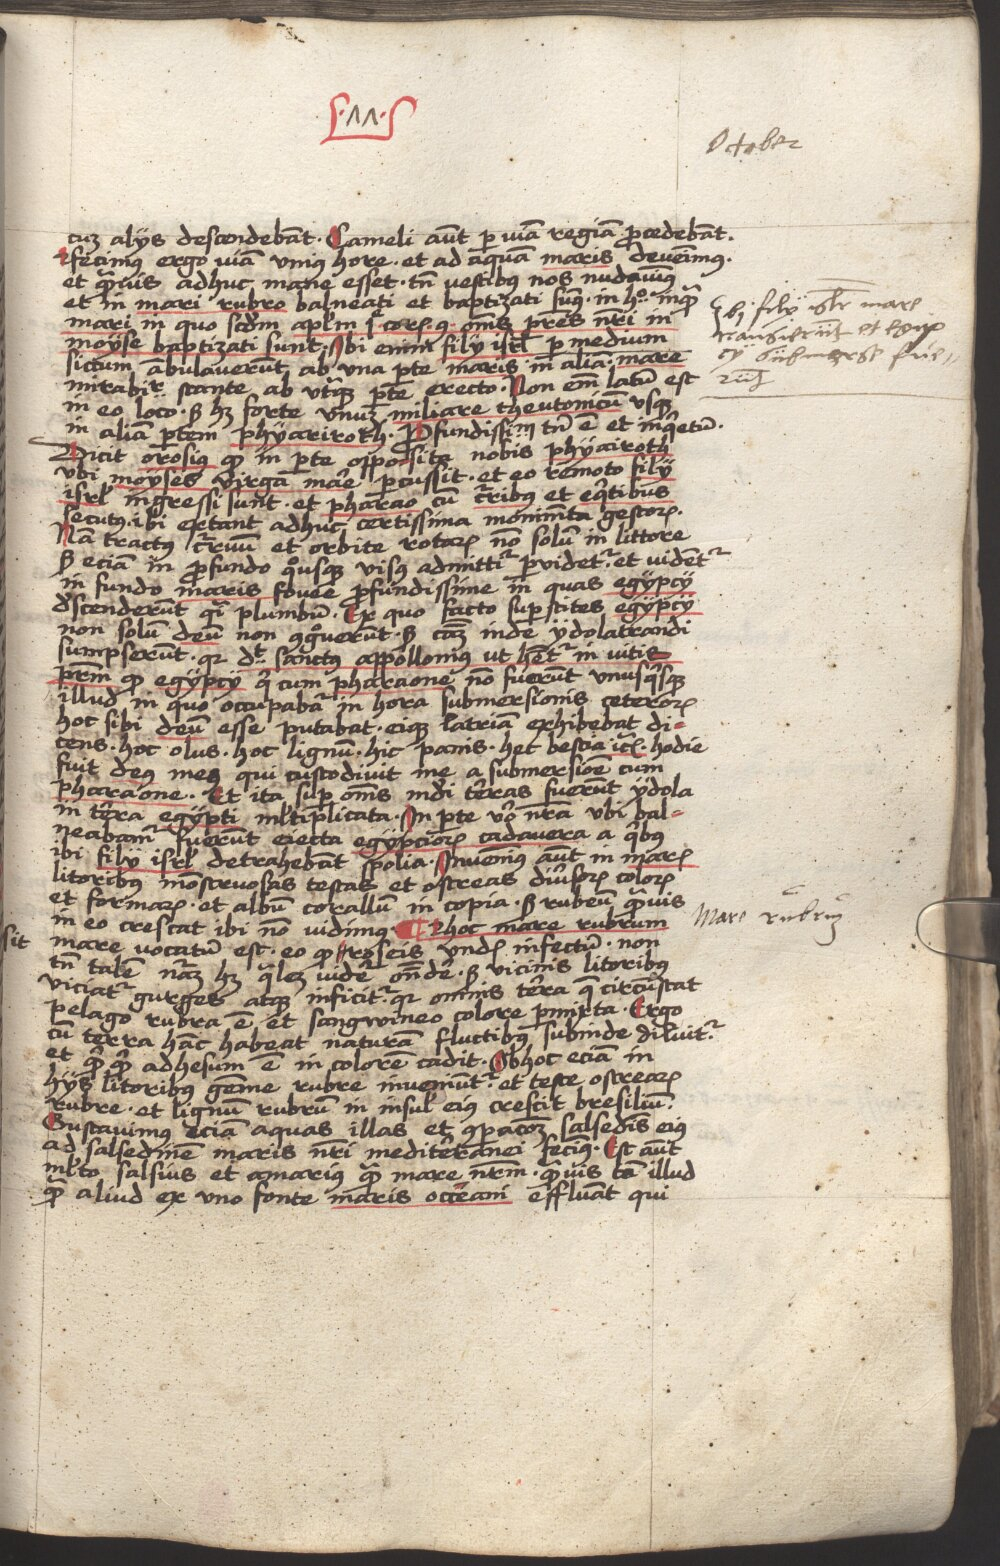 ·ʌʌ·
October
cuz alijs descendebāt. Cameli aūt p̲ viā regiā p̲cedebāt.
fecimus ergo viā vnius hore. et ad aquā maris deuenimus.
et quāuis adhuc mane esset. tn̄ vestibus nos nudauimus
et in mari rubro balneati et baptizati sumus. in hoc inquā
mari in quo scd̄m apl̄m j cor. q. om̄s pr̄es nr̄i in
moyse baptizati sunt. Ibi enim filij isrl̄ p̲ medium
siccum ābulauerūt, ab vna p̲te maris in aliā. mare
mirabilr stante ab vtraq̄ p̲te erecto. Non em̄ latū est
in eo loco. s̄ hz forte vnuz miliare theutonicū vsqz
in aliā p̲tem phyariroth. Profundissim tn̄ ē et inquietū.
Dicit orosius qd̄ in p̲te opposita nobis phyairoth
vbi moyses virgā mare p̲cussit. et eo remoto filij
isrl̄ ingressi sunt. et pharao cū curribus et eqtibus
secutus. ibi extant adhuc certissima monim̄ta gestorz.
Nā tractus curruū et orbite rotarz nō solū in littore
s̄ eciā in p̲fundo quousqz visus admittir p̲videtr. et vidēt
in fundo maris fouee p̲fundissime in quas egypcij
descenderūt quasi plumbū. Ex quo facto sup̲stites egypcij
non solū deū non cognouerūt. s̄ cām inde ydolatrandi
sumpserūt. qr dt sanctus appollonius ut hētr in vitis
pr̄m qd̄ egypcij q̄ cum pharaone nō fuerūt vnusqsqz
illud in quo occupabār in hora submersionis ceterorz
hoc sibi deū esse putabat. eiqz latriā exhibebat di-
cens. hoc olus. hoc lignū. hic panis. hec bestia icz. hodie
fuit deus meus qui custodiuit me a submersiōe cum
pharaone. Et ita sup̲ om̄s mdi t̄ras fuerūt ydola
in t̄ra egypti ml̄tiplicata. In p̲te vo nr̄a vbi bal-
neabamr fuerūt eiecta egypciorz cadauera a qbus
ibi filij isrl̄ detrahebāt spolia. Inuenimus aūt in marz
litoribus mōstruosas testas et ostreas diūsorz colorz
et formarz. et albū corallū in copia. s̄ rubeū quāuis
in eo crescat ibi nō vidimus. ¶ Et hoc mare rubrum
mare vocatū est. eo qd̄ roseis vndis infectū. non
tn̄ talē nāz hz qlez videt ōnde. s̄ vicinis litoribus
viciatr gurges atqz inficitr. qr omnis t̄ra q̄ circūstat
pelago rubra ē. et sangwineo colore p̲mixta. Ergo
cū terra hāc habeat naturā fluctibus subinde diluitr.
et q̄ q̄ adhesum ē in colorē cadit. Ob hoc eciā in
hijs litoribus gēme rubre inueniūtr. et teste ostrearz
rubre. et lignū rubrū in insul eius crescit bresiliū.
Gustauimus eciā aquas illas et cōp̲acōez salsedis eius
ad salsedinē maris nr̄i mediterranei fecimus. Est aūt
ml̄to salsius et amarius quā mare nr̄m. quāuis tā illud
quā aliud ex vno fonte maris occeani effluāt qui
hi filij isrl̄ mare
transierūt et egyp
cij submerse fue
rūt
Mare rubrū
sit